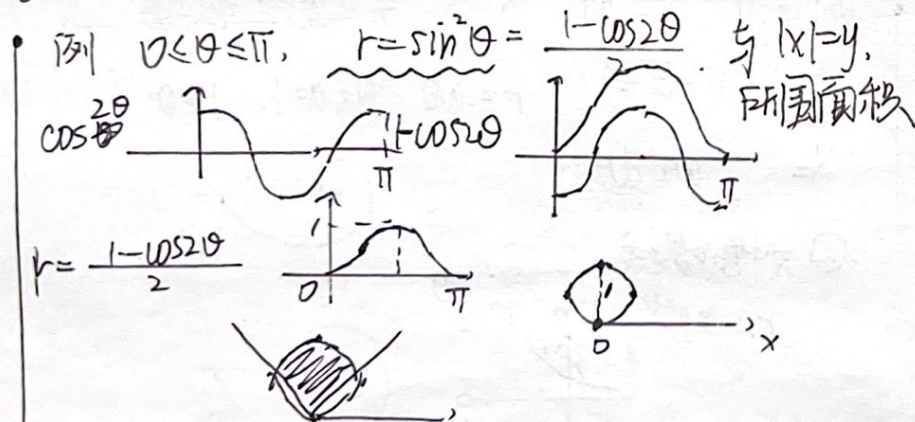 例 0≤θ≤π, r=sin²θ= (1-cos2θ)/2 . 与 |x|=y,
所围面积
cos2θ π 1-cos2θ π
r= (1-cos2θ)/2 1 0 π
0 x